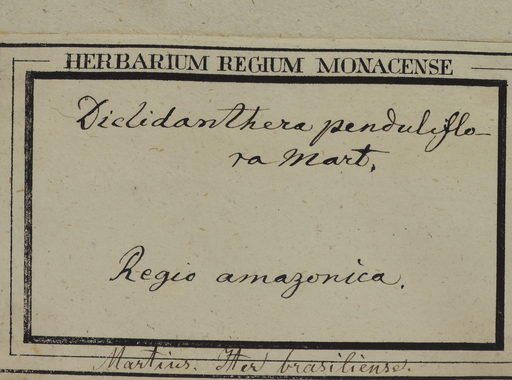 HERBARIUM REGIUM MONACENSE
Diclidanthera penduliflo-
ra Mart.
Regio amazonica.
Martius. Iter brasiliense.